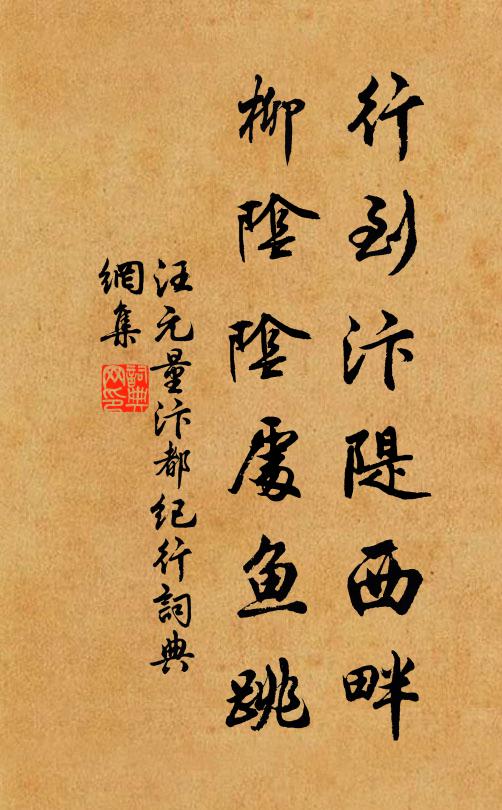 行到汴隄西畔
柳陰陰處魚跳
汪元量汴都紀行詞典
網集
詞典網印